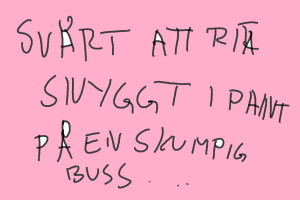 SVÅRT ATT RITA
SNYGGT I PAINT
PÅ EN SKUMPIG
BUSS...